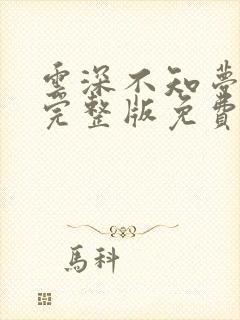 雲深不知夢
完整版免費
馬科